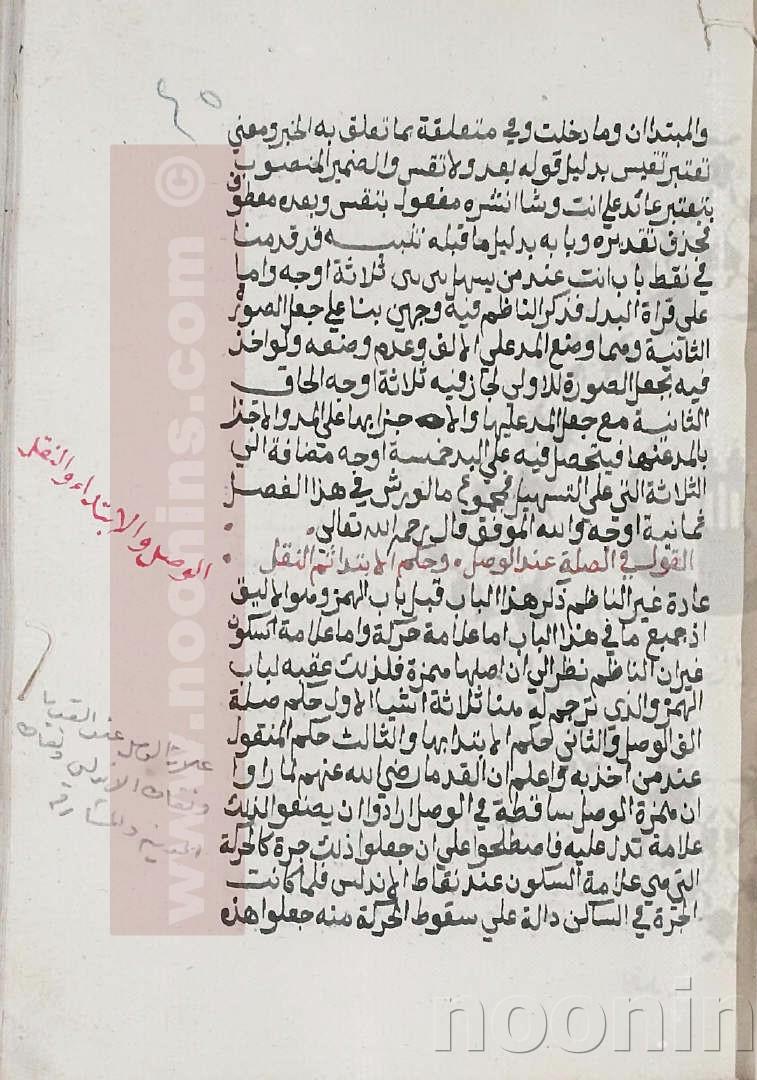 ٤٥
والمبتدا ان وما دخلت وفي متعلقة بما تعلق به الخبر ومعني
تعتبر تقيس بدليل قوله بعد ولا تقس والضمير المنصوب
بتعتبر عائد علي انت وشا انشره مفعول بتقس وبعده معطوف
محذوف تقديره وبابه بدليل ما قبله تنبيه قد قدمنا
في نقط باب انت عند من يسهل ثلاثة اوجه واما
علي قراة البدل فذكر الناظم فيه وجهين بنا علي جعل الصورة
الثانية وهما وضع المد علي الالف وعدم وضعه ولو اخذ
فيه بجعل الصورة للاولي لجاز فيه ثلاثة اوجه الحاق
الثانية مع جعل المد عليها والا جتزا بها علي المد والاجتزا
بالمد عنها فيتحصل فيه علي البدل خمسة اوجه مضافة الي
الثلاثة التي علي التسهيل فمجموع ما لورش في هذا الفصل
ثمانية اوجه والله الموفق قال رحمه الله تعالي
القول في الصلة عند الوصل وحكم الابتدا ثم النقل
عادة غير الناظم ذكر هذا الباب قبل باب الهمز وهو الاليق
اذ جميع ما في هذا الباب اما علامة حركة واما علامة السكون
غير ان الناظم نظر الي ان اصلها همزة فلذلك عقبه لباب
الهمز والذي ترجم له هنا ثلاثة اشيا الاول حكم صلة
الف الوصل والثاني حكم الابتدا بها والثالث حكم المنقول
عند من اخذ به واعلم ان القدما رضي الله عنهم لما راوا
ان همزة الوصل ساقطة في الوصل ارادوا ان يضعوا لذلك
علامة تدل عليه فاصطلحوا علي ان جعلوا ذلك جرة كالجرة
التي هي علامة السكون عند نقاط الاندلس فلما كانت
الجرة في الساكن دالة علي سقوط الحركة منه جعلوا هذه
الوصل والابتداء والنقل
علامة الوصل عند القدما
ونقاط الاندلس ونقاط
المدينة والمشارقة
© www.noonins.com
noonin